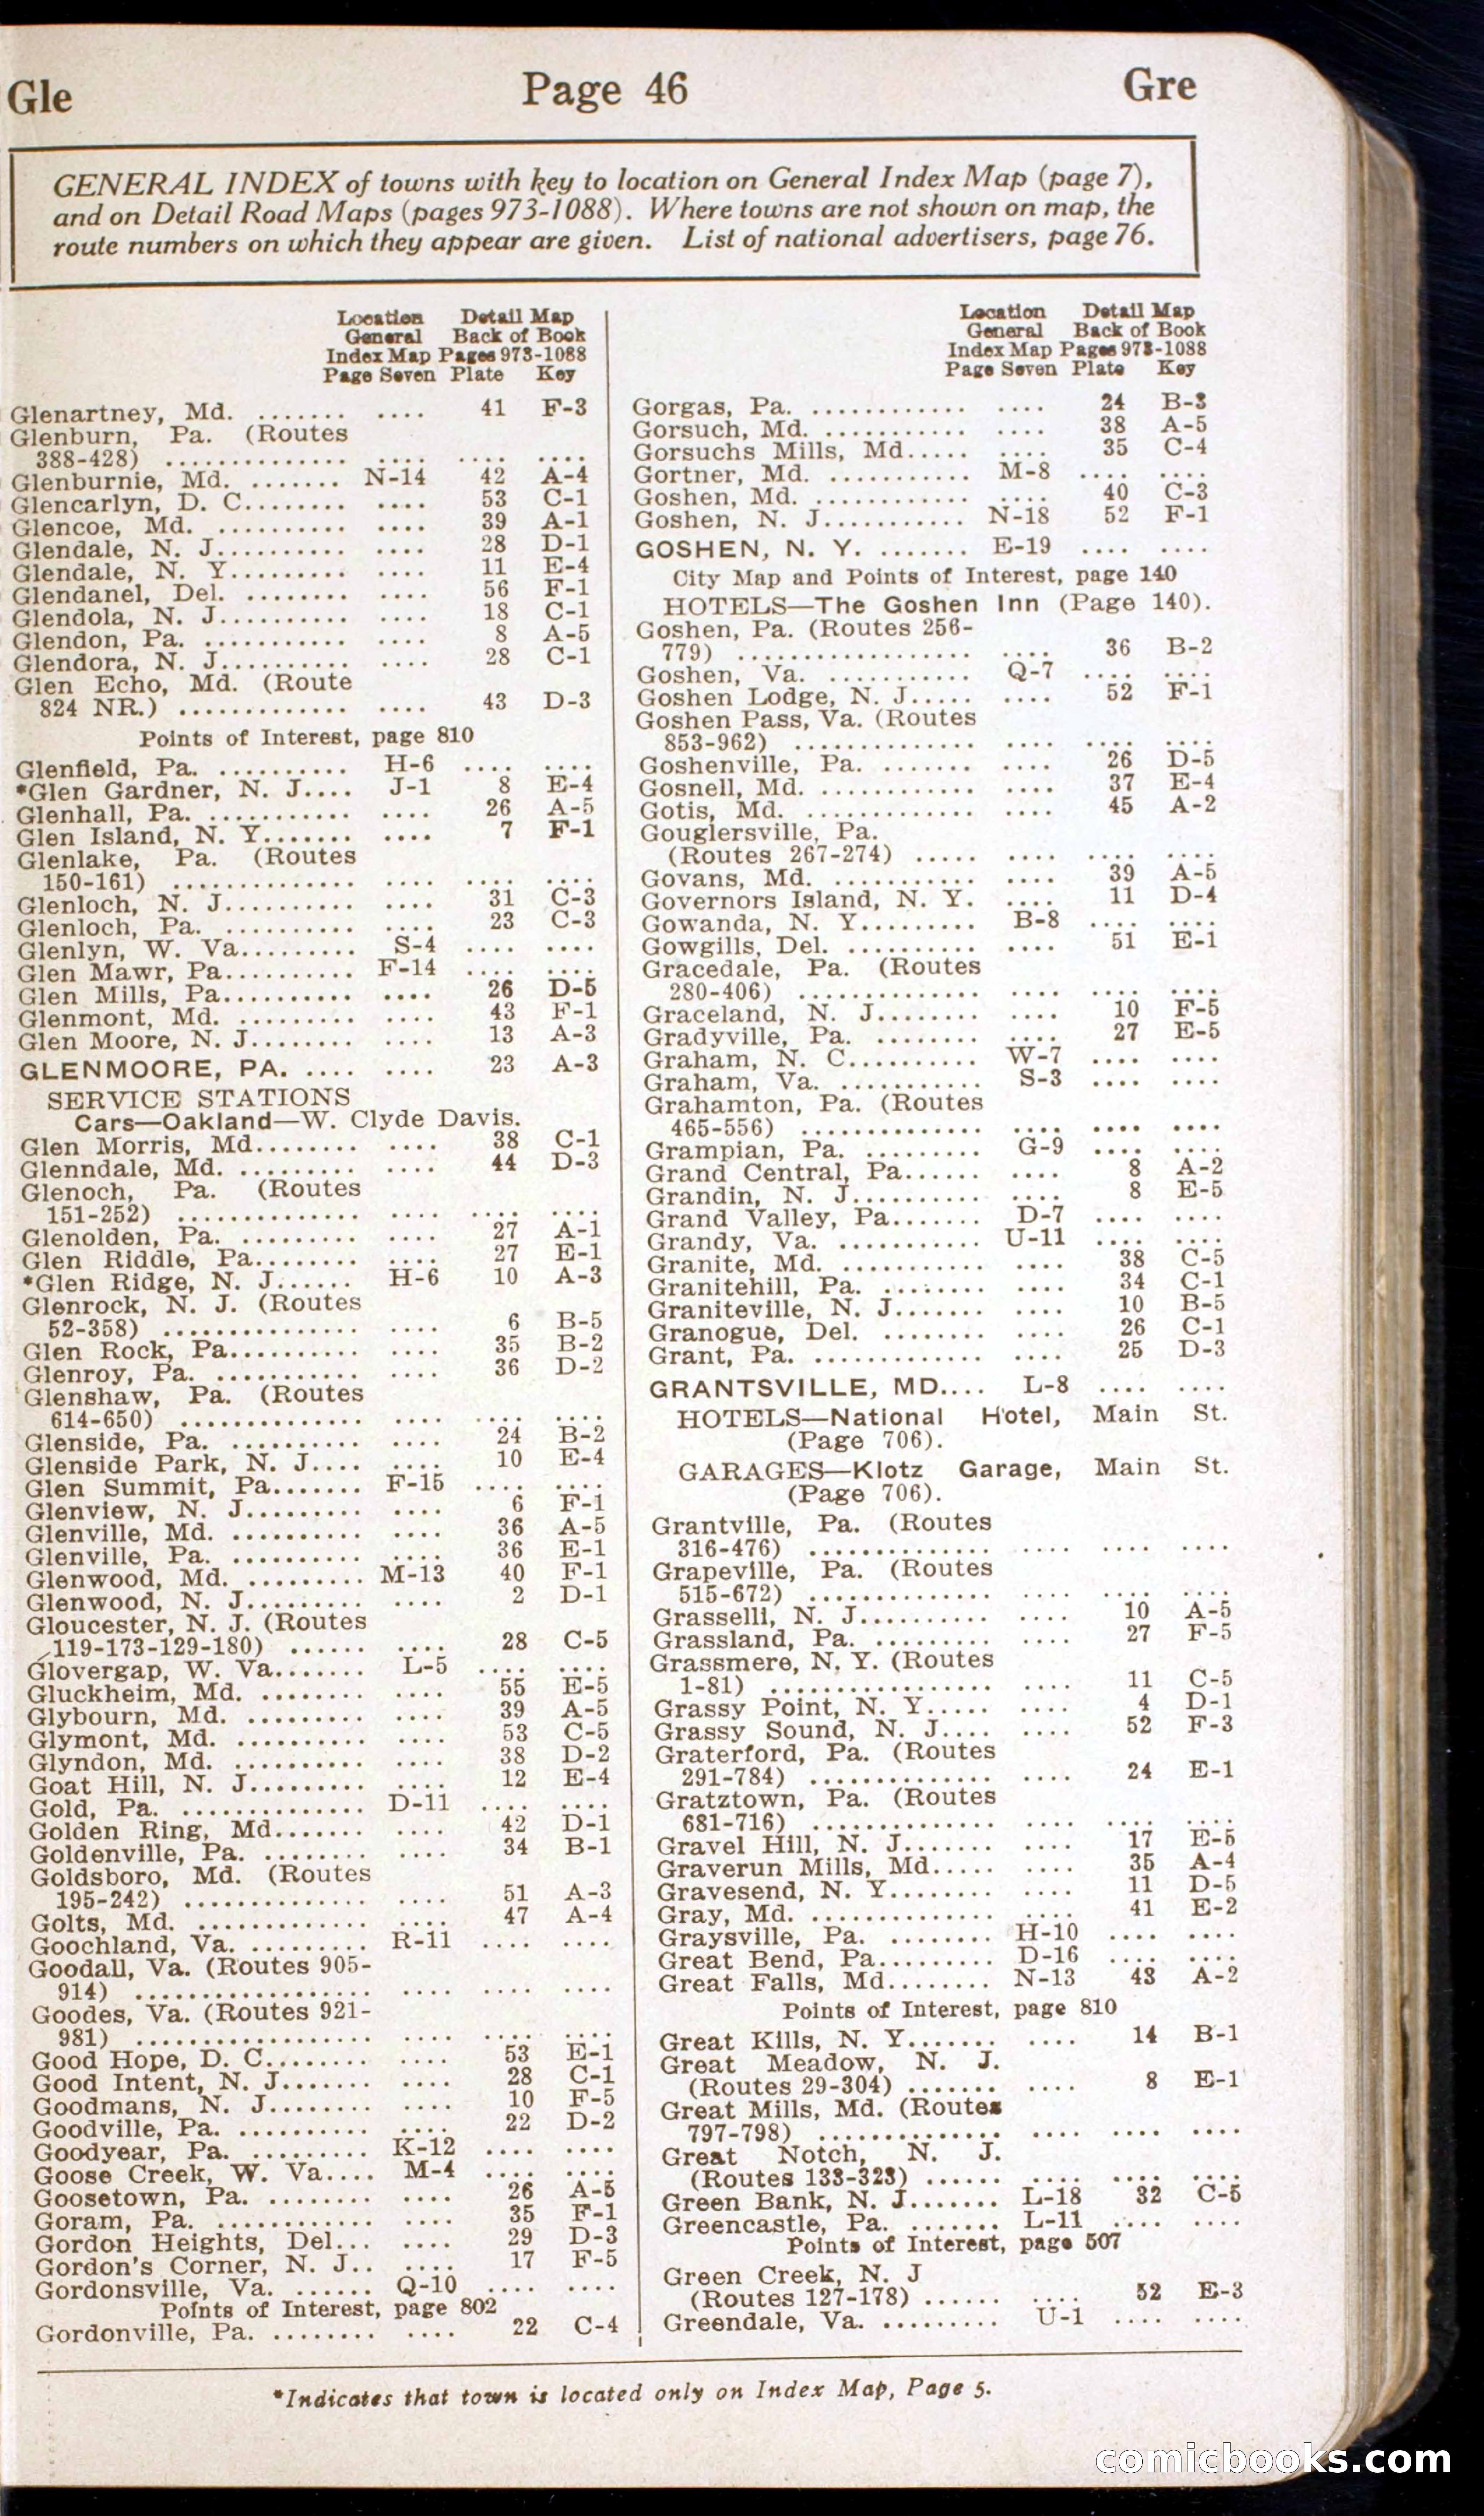 Gle Page 46 Gre
GENERAL INDEX of towns with key to location on General Index Map (page 7),
and on Detail Road Maps (pages 973-1088). Where towns are not shown on map, the
route numbers on which they appear are given. List of national advertisers, page 76.
Location Detail Map
General Back of Book
Index Map Pages 973-1088
Page Seven Plate Key
Glenartney, Md. ....... .... 41 F-3
Glenburn, Pa. (Routes
388-428) .............. .... .... ....
Glenburnie, Md. ....... N-14 42 A-4
Glencarlyn, D. C........ .... 53 C-1
Glencoe, Md. .......... .... 39 A-1
Glendale, N. J.......... .... 28 D-1
Glendale, N. Y......... .... 11 E-4
Glendanel, Del. ........ .... 56 F-1
Glendola, N. J.......... .... 18 C-1
Glendon, Pa. ........... .... 8 A-5
Glendora, N. J.......... .... 28 C-1
Glen Echo, Md. (Route
824 NR.) ............. .... 43 D-3
Points of Interest, page 810
Glenfield, Pa. .......... H-6 .... ....
*Glen Gardner, N. J.... J-1 8 E-4
Glenhall, Pa. ........... .... 26 A-5
Glen Island, N. Y....... .... 7 F-1
Glenlake, Pa. (Routes
150-161) .............. .... .... ....
Glenloch, N. J.......... .... 31 C-3
Glenloch, Pa. .......... .... 23 C-3
Glenlyn, W. Va......... S-4 .... ....
Glen Mawr, Pa.......... F-14 .... ....
Glen Mills, Pa.......... .... 26 D-5
Glenmont, Md. ......... .... 43 F-1
Glen Moore, N. J........ .... 13 A-3
GLENMOORE, PA. .... .... 23 A-3
SERVICE STATIONS
Cars—Oakland—W. Clyde Davis.
Glen Morris, Md........ .... 38 C-1
Glenndale, Md. ......... .... 44 D-3
Glenoch, Pa. (Routes
151-252) .............. .... .... ....
Glenolden, Pa. ......... .... 27 A-1
Glen Riddle, Pa........ .... 27 E-1
*Glen Ridge, N. J...... H-6 10 A-3
Glenrock, N. J. (Routes
52-358) ............... .... 6 B-5
Glen Rock, Pa.......... .... 35 B-2
Glenroy, Pa. ........... .... 36 D-2
Glenshaw, Pa. (Routes
614-650) .............. .... .... ....
Glenside, Pa. .......... .... 24 B-2
Glenside Park, N. J.... .... 10 E-4
Glen Summit, Pa....... F-15 .... ....
Glenview, N. J......... .... 6 F-1
Glenville, Md. .......... .... 36 A-5
Glenville, Pa. .......... .... 36 E-1
Glenwood, Md. ......... M-13 40 F-1
Glenwood, N. J......... .... 2 D-1
Gloucester, N. J. (Routes
119-173-129-180) ...... .... 28 C-5
Glovergap, W. Va....... L-5 .... ....
Gluckheim, Md. ........ .... 55 E-5
Glybourn, Md. ......... .... 39 A-5
Glymont, Md. .......... .... 53 C-5
Glyndon, Md. .......... .... 38 D-2
Goat Hill, N. J......... .... 12 E-4
Gold, Pa. .............. D-11 .... ....
Golden Ring, Md....... .... 42 D-1
Goldenville, Pa. ........ .... 34 B-1
Goldsboro, Md. (Routes
195-242) .............. .... 51 A-3
Golts, Md. ............. .... 47 A-4
Goochland, Va. ......... R-11 .... ....
Goodall, Va. (Routes 905-
914) .................. .... .... ....
Goodes, Va. (Routes 921-
981) .................. .... .... ....
Good Hope, D. C........ .... 53 E-1
Good Intent, N. J....... .... 28 C-1
Goodmans, N. J........ .... 10 F-5
Goodville, Pa. .......... .... 22 D-2
Goodyear, Pa. .......... K-12 .... ....
Goose Creek, W. Va.... M-4 .... ....
Goosetown, Pa. ........ .... 26 A-5
Goram, Pa. ............ .... 35 F-1
Gordon Heights, Del... .... 29 D-3
Gordon's Corner, N. J.. .... 17 F-5
Gordonsville, Va. ...... Q-10 .... ....
Points of Interest, page 802
Gordonville, Pa. ........ .... 22 C-4
Location Detail Map
General Back of Book
Index Map Pages 973-1088
Page Seven Plate Key
Gorgas, Pa. ............ .... 24 B-3
Gorsuch, Md. ........... .... 38 A-5
Gorsuchs Mills, Md..... .... 35 C-4
Gortner, Md. ........... M-8 .... ....
Goshen, Md. ............ .... 40 C-3
Goshen, N. J........... N-18 52 F-1
GOSHEN, N. Y. ....... E-19 .... ....
City Map and Points of Interest, page 140
HOTELS—The Goshen Inn (Page 140).
Goshen, Pa. (Routes 256-
779) .................. .... 36 B-2
Goshen, Va. ........... Q-7 .... ....
Goshen Lodge, N. J..... .... 52 F-1
Goshen Pass, Va. (Routes
853-962) .............. .... .... ....
Goshenville, Pa. ....... .... 26 D-5
Gosnell, Md. ............ .... 37 E-4
Gotis, Md. ............. .... 45 A-2
Gouglersville, Pa.
(Routes 267-274) ..... .... .... ....
Govans, Md. ........... .... 39 A-5
Governors Island, N. Y. .... 11 D-4
Gowanda, N. Y......... B-8 .... ....
Gowgills, Del. .......... .... 51 E-1
Gracedale, Pa. (Routes
280-406) .............. .... .... ....
Graceland, N. J........ .... 10 F-5
Gradyville, Pa. ........ .... 27 E-5
Graham, N. C.......... W-7 .... ....
Graham, Va. ........... S-3 .... ....
Grahamton, Pa. (Routes
465-556) .............. .... .... ....
Grampian, Pa. ......... G-9 .... ....
Grand Central, Pa...... .... 8 A-2
Grandin, N. J.......... .... 8 E-5
Grand Valley, Pa....... D-7 .... ....
Grandy, Va. ........... U-11 .... ....
Granite, Md. ........... .... 38 C-5
Granitehill, Pa. ........ .... 34 C-1
Graniteville, N. J....... .... 10 B-5
Granogue, Del. ........ .... 26 C-1
Grant, Pa. ............. .... 25 D-3
GRANTSVILLE, MD.... L-8 .... ....
HOTELS—National Hotel, Main St.
(Page 706).
GARAGES—Klotz Garage, Main St.
(Page 706).
Grantville, Pa. (Routes
316-476) .............. .... .... ....
Grapeville, Pa. (Routes
515-672) .............. .... .... ....
Grasselli, N. J.......... .... 10 A-5
Grassland, Pa. ......... .... 27 F-5
Grassmere, N. Y. (Routes
1-81) ................. .... 11 C-5
Grassy Point, N. Y..... .... 4 D-1
Grassy Sound, N. J.... .... 52 F-3
Graterford, Pa. (Routes
291-784) .............. .... 24 E-1
Gratztown, Pa. (Routes
681-716) .............. .... .... ....
Gravel Hill, N. J....... .... 17 E-5
Graverun Mills, Md..... .... 35 A-4
Gravesend, N. Y........ .... 11 D-5
Gray, Md. .............. .... 41 E-2
Graysville, Pa. ........ H-10 .... ....
Great Bend, Pa......... D-16 .... ....
Great Falls, Md........ N-13 43 A-2
Points of Interest, page 810
Great Kills, N. Y....... .... 14 B-1
Great Meadow, N. J.
(Routes 29-304) ....... .... 8 E-1
Great Mills, Md. (Routes
797-798) .............. .... .... ....
Great Notch, N. J.
(Routes 133-323) ...... .... .... ....
Green Bank, N. J....... L-18 32 C-5
Greencastle, Pa. ....... L-11 .... ....
Points of Interest, page 507
Green Creek, N. J
(Routes 127-178) ...... .... 52 E-3
Greendale, Va. ......... U-1 .... ....
*Indicates that town is located only on Index Map, Page 5.
comicbooks.com